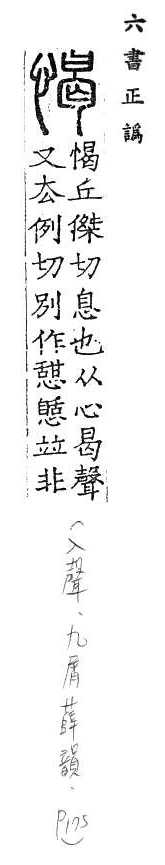 六書正譌
愒丘傑切息也从心曷聲
又厺例切別作憇憩竝非
（入聲、九屑薛韻、P175）